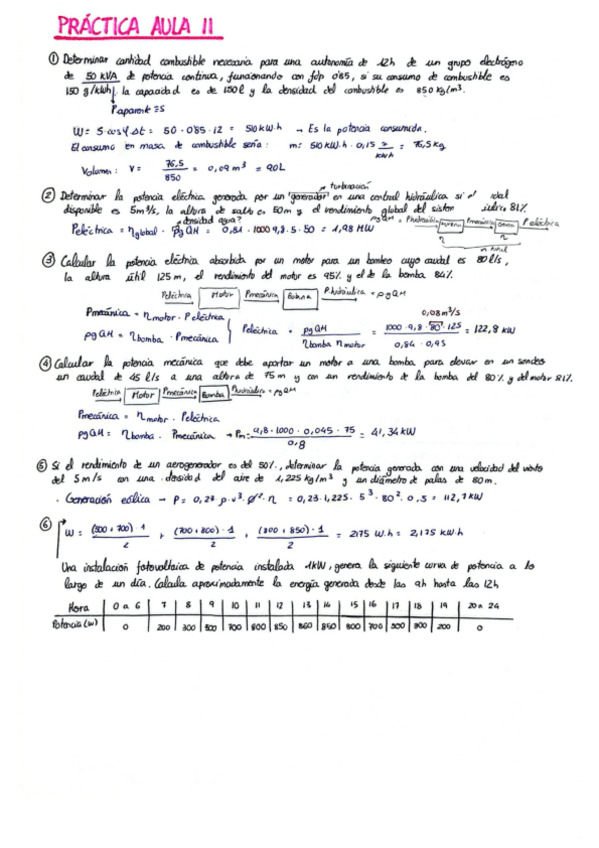 PRÁCTICA AULA 11
① Determinar cantidad combustible necesaria para una autonomía de 12h de un grupo electrógeno
de 50 KVA de potencia continua, funcionando con fdp 0'85, si su consumo de combustible es
150 g/kWh, la capacidad es de 150 l y la densidad del combustible es 850 kg/m³.
Paparente ≡ S
W = S·cosφ·Δt = 50·0'85·12 = 510 kW·h → Es la potencia consumida.
El consumo en masa de combustible sería: m = 510 kW·h · 0,15 = 76,5 kg
Volumen: V = 76,5 / 850 = 0,09 m³ = 90L
② Determinar la potencia eléctrica generada por un "generador" en una central hidráulica si el
turbinación
disponible es 5m³/s, la altura de salto es 50m y el rendimiento global del sistem 81%.
densidad agua?
Peléctrica = ηglobal · ρgQH = 0,81·1000·9,8·5·50 = 1,98 MW
ρgQH = Phidráulica Pmecánica Peléctrica
η
η total
③ Calcular la potencia eléctrica absorbida por un motor para un bombeo cuyo caudal es 80 l/s,
la altura útil 125m, el rendimiento del motor es 95% y el de la bomba 84%.
Peléctrica Motor Pmecánica Bomba Phidráulica = ρgQH
Pmecánica = ηmotor · Peléctrica
ρgQH = ηbomba · Pmecánica
Peléctrica = ρgQH / ηbomba ηmotor = 1000·9,8·80·125 / 0,84·0,95 = 122,8 kW
0,08m³/s
④ Calcular la potencia mecánica que debe aportar un motor a una bomba para elevar en un sondeo
un caudal de 45 l/s a una altura de 75m y con un rendimiento de la bomba del 80% y del motor 81%.
Peléctrica Motor Pmecánica Bomba Phidráulica = ρgQH
Pmecánica = ηmotor · Peléctrica
ρgQH = ηbomba · Pmecánica → Pm = 9,8·1000·0,045·75 / 0,8 = 41,34 kW
⑤ Si el rendimiento de un aerogenerador es del 50%, determinar la potencia generada con una velocidad del viento
del 5m/s con una densidad del aire de 1,225 kg/m³ y un diámetro de palas de 80m.
· Generación eólica → P = 0,23·ρ·v³·Ø²·η = 0,23·1,225·5³·80²·0,5 = 112,7 kW
⑥ W = (500+700)·1 / 2 + (700+800)·1 / 2 + (800+850)·1 / 2 = 2175 W·h = 2,175 kW·h
Una instalación fotovoltaica de potencia instalada 1kW, genera la siguiente curva de potencia a lo
largo de un día. Calcula aproximadamente la energía generada desde las 9h hasta las 12h
Hora 0 a 6 7 8 9 10 11 12 13 14 15 16 17 18 19 20 a 24
Potencia (W) 0 200 300 500 700 800 850 860 850 800 700 500 300 200 0